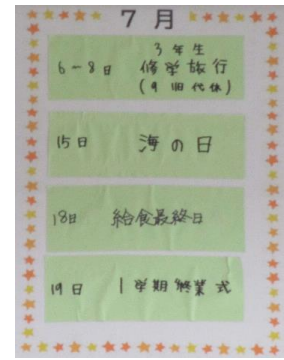 7月
3年生
6-8日 修学旅行
(9日代休)
15日 海の日
18日 給食最終日
19日 1学期終業式